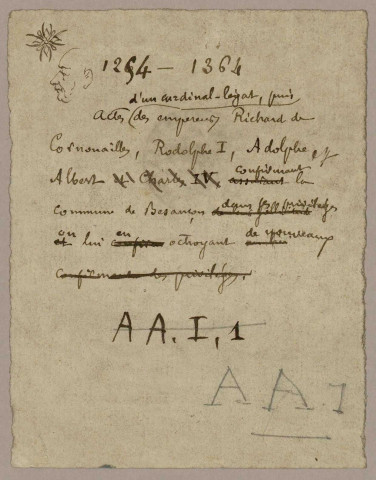 1264 — 1364
d'un cardinal-légat, puis
Actes (des empereurs) Richard de
Cornouailles, Rodolphe I, Adolphe,
Albert et Charles IV confirmant la
commune de Besançon dans ses privilèges
ou lui en octroyant de nouveaux
confirmant les privilèges.
AA. I, 1
AA. 1